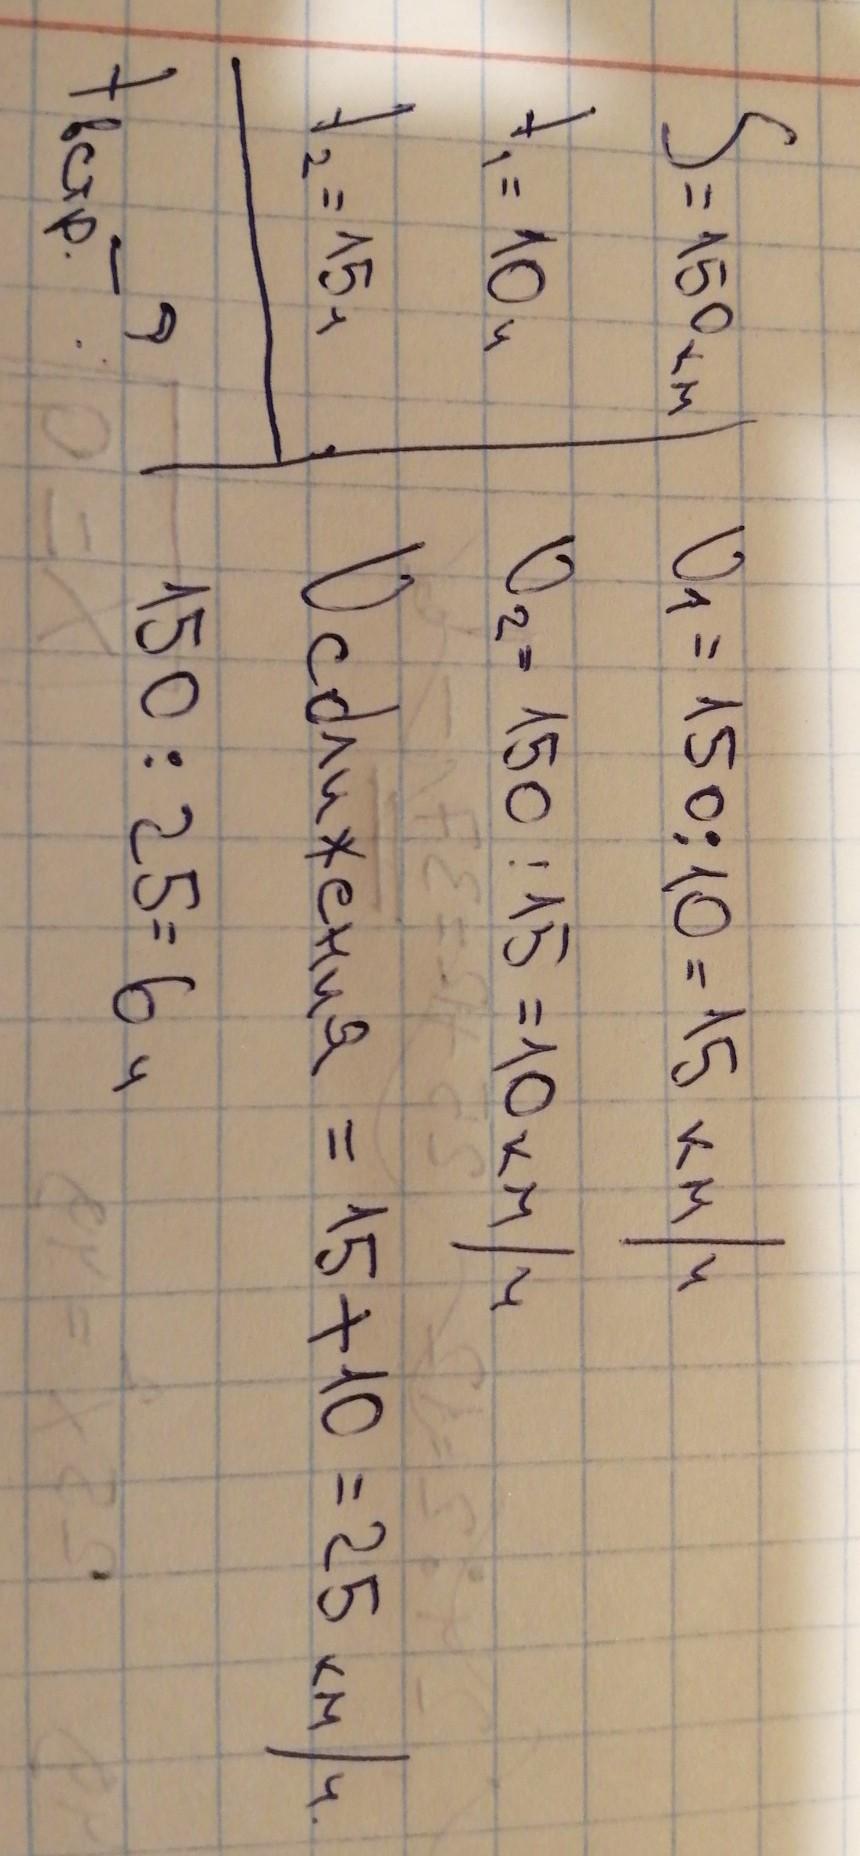 S = 150 км
t₁ = 10 ч
t₂ = 15 ч
t встр. – ?
υ₁ = 150 : 10 = 15 км/ч
υ₂ = 150 : 15 = 10 км/ч
υ сближения = 15 + 10 = 25 км/ч.
150 : 25 = 6 ч